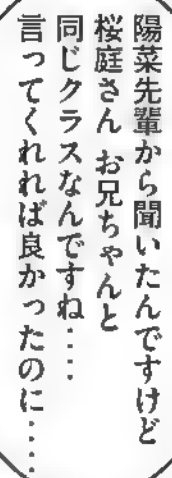 陽菜先輩から聞いたんですけど
桜庭さん お兄ちゃんと
同じクラスなんですね‥‥
言ってくれれば良かったのに‥‥